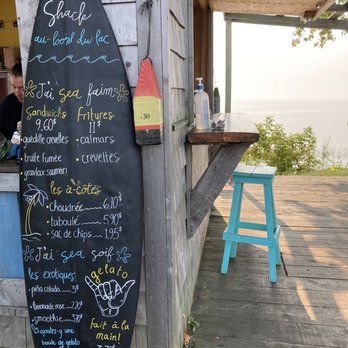 Shack
au-bord du lac
J'ai sea faim
Sandwichs
9,60$
guédille crevettes
truite fumée
gravlax saumon
Fritures
11$
• calmars
• crevettes
les à-côtés
• Chaudrée 6,10$
• taboulé 5,90$
• sac de chips 1,95$
J'ai sea soif
les exotiques!
• piña colada
• limonade rose
• smoothie
ajoutez-y une
boule de gelato
gelato
fait à la
main!